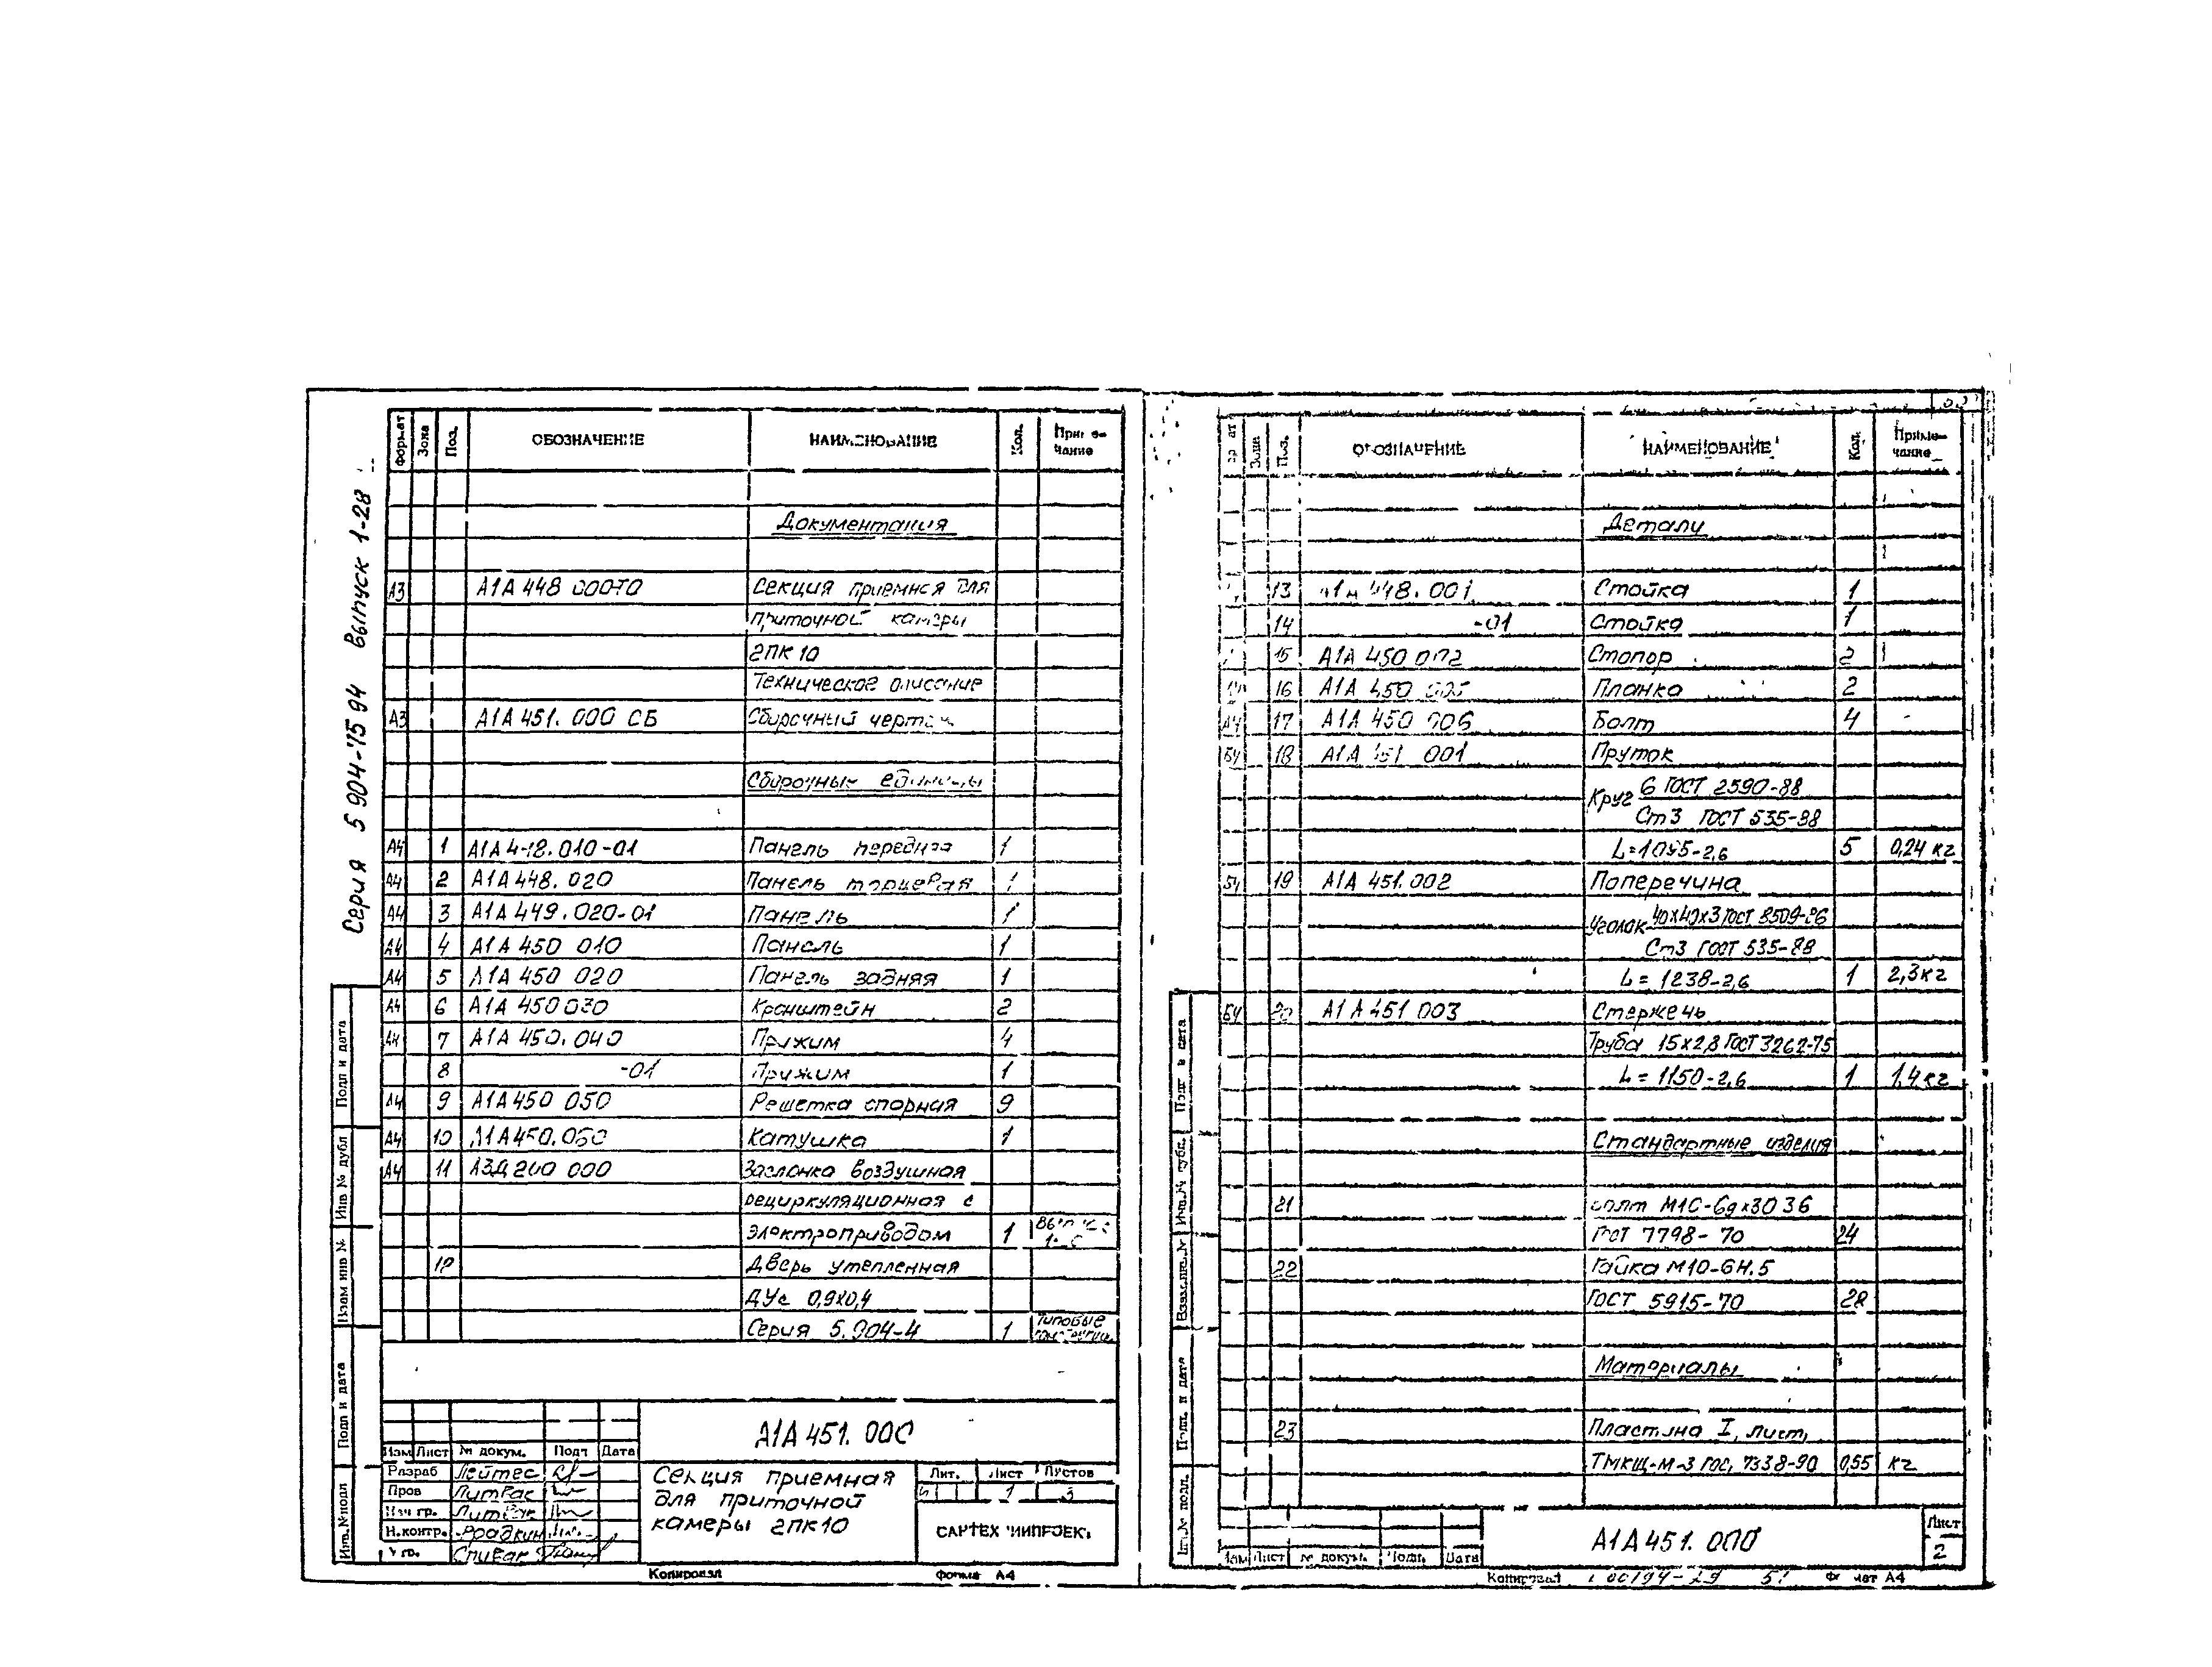 Серия 5 904-75 94 выпуск 1-28
Формат Зона Поз. ОБОЗНАЧЕНИЕ НАИМЕНОВАНИЕ Кол. Приме-чание
Документация
А3 А1А 448 000ТО Секция приемная для
приточной камеры
2ПК10
Техническое описание
А3 А1А 451. 000 СБ Сборочный чертеж
Сборочные единицы
А4 1 А1А 448.010-01 Панель передняя 1
А4 2 А1А 448. 020 Панель торцевая 1
А4 3 А1А 449.020-01 Панель 1
А4 4 А1А 450 010 Панель 1
А4 5 А1А 450 020 Панель задняя 1
А4 6 А1А 450 030 Кронштейн 2
А4 7 А1А 450.040 Прижим 4
8 -01 Прижим 1
А4 9 А1А 450 050 Решетка опорная 9
А4 10 А1А 450.060 Катушка 1
А4 11 А3Д 200 000 Заслонка воздушная
рециркуляционная с
электроприводом 1
12 Дверь утепленная
ДУс 0,9х0,4
Серия 5.904-4 1 Типовые
А1А 451. 000
Изм Лист № докум. Подп Дата
Разраб Лейтес
Пров Литвак
Нач гр. Литвак
Н.контр.
Спивак
Секция приемная
для приточной
камеры 2ПК10
Лит. Лист Листов
И 1 3
САНТЕХНИИПРОЕКТ
Копировал Формат А4
Подп и дата
Инв № дубл
Взам инв №
Подп и дата
Инв.№подл
Формат Зона Поз. ОБОЗНАЧЕНИЕ НАИМЕНОВАНИЕ Кол. Приме-чание
Детали
13 А1А 448.001 Стойка 1
14 -01 Стойка 1
15 А1А 450 002 Стопор 2
16 А1А 450 005 Планка 2
А4 17 А1А 450 006 Болт 4
БЧ 18 А1А 451 001 Пруток
Круг 6 ГОСТ 2590-88
Ст3 ГОСТ 535-88
L=1095-2,6 5 0,24 кг
БЧ 19 А1А 451.002 Поперечина
Уголок 40х40х3 ГОСТ 8509-86
Ст3 ГОСТ 535-88
L= 1238-2,6 1 2,3кг
БЧ 20 А1А 451 003 Стержень
Труба 15х2,8 ГОСТ 3262-75
L= 1150-2,6 1 1,4кг
Стандартные изделия
21 Болт М10-6gх30 36
ГОСТ 7798-70 24
22 Гайка М10-6Н.5
ГОСТ 5915-70 28
Материалы
23 Пластина I, лист,
ТМКЩ-М-3 ГОСТ 7338-90 0,55 кг
Изм Лист № докум. Подп. Дата
А1А 451. 000
Лист
2
Копировал Формат А4
Подп и дата
Инв.№ дубл.
Взам.инв.№
Подп. и дата
Инв.№ подл.